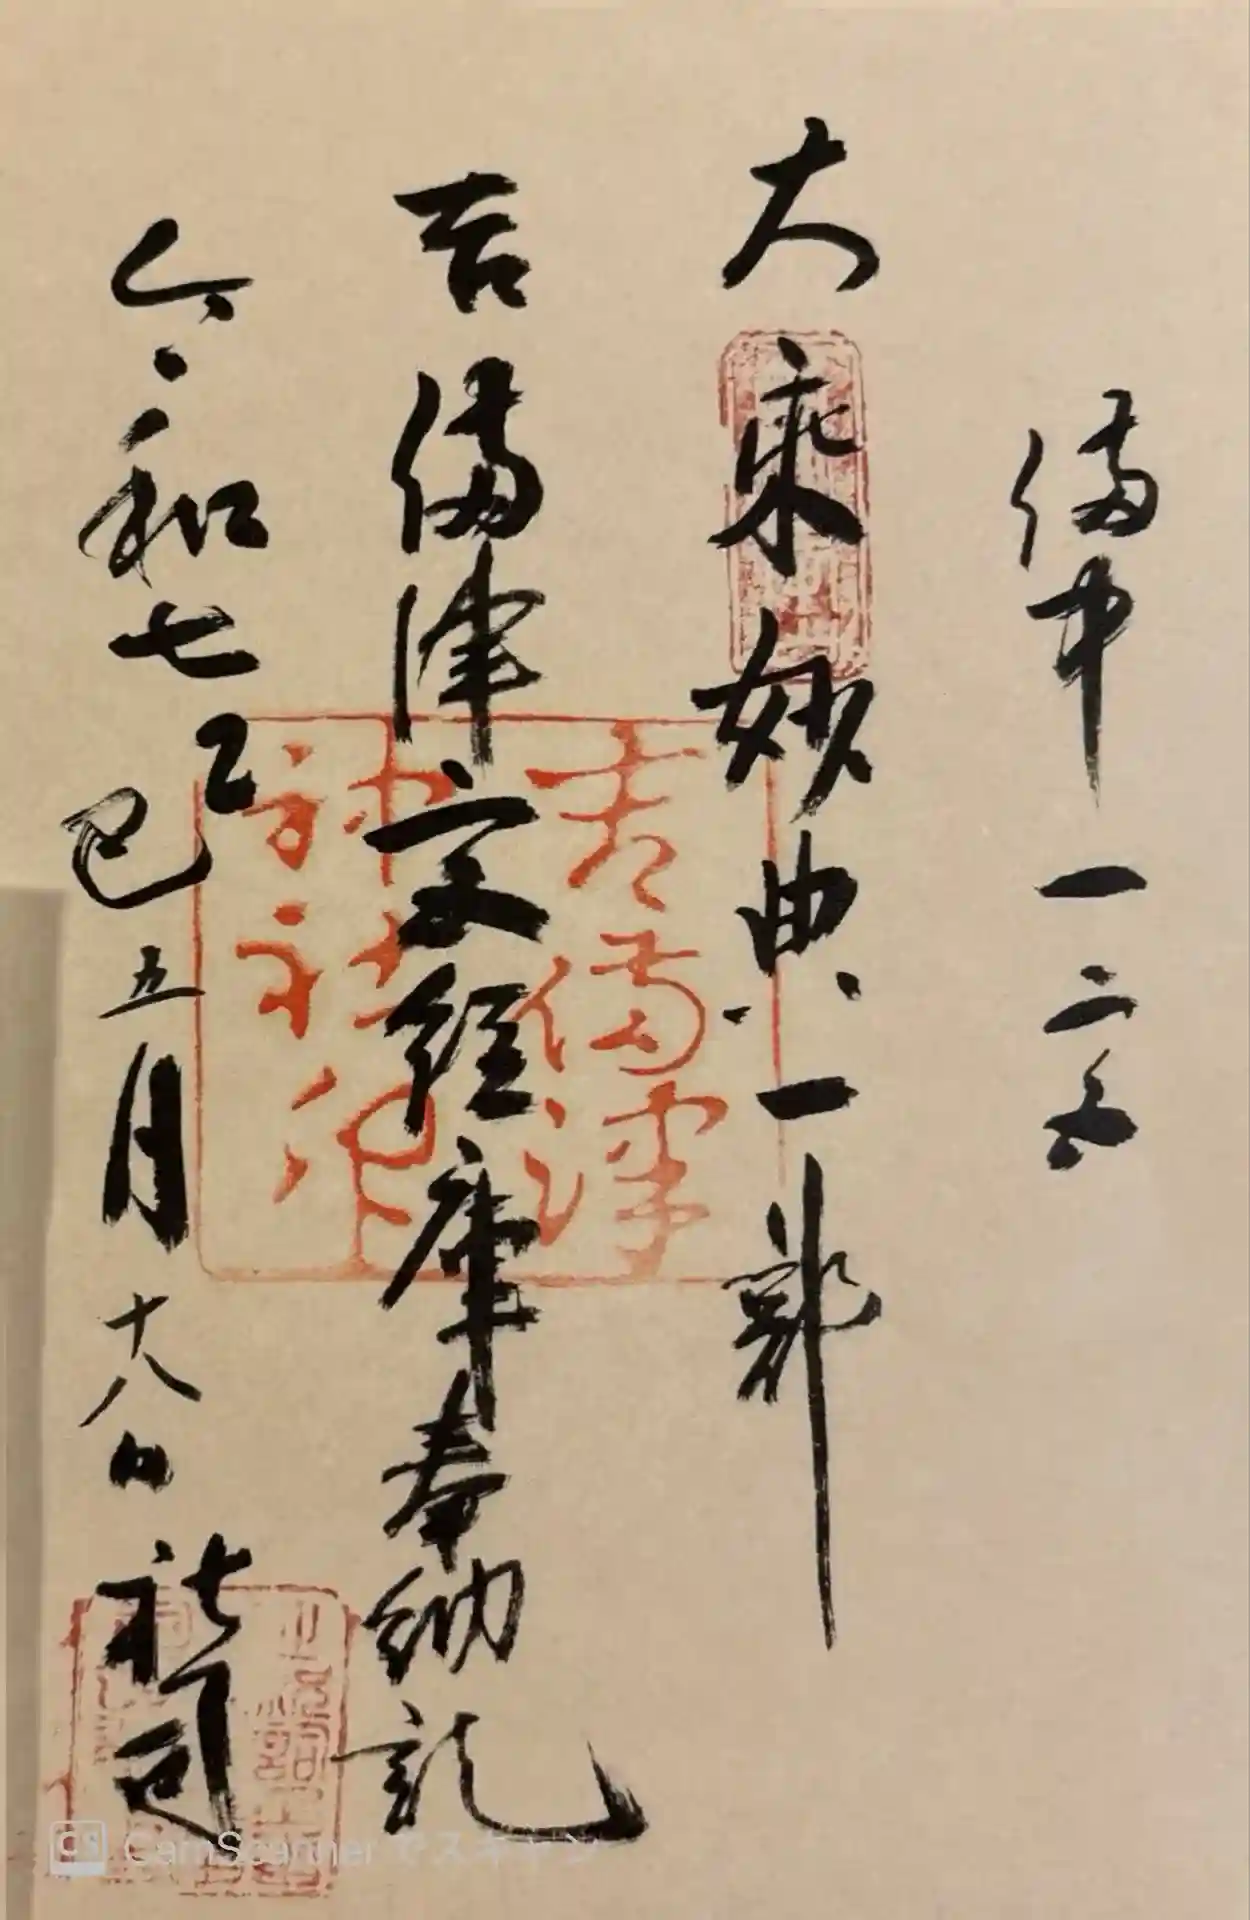 備中一宮
大乗妙典一部
吉備津経庫奉納記
令和七乙巳五月十八日
社司
吉備津
神社印
CS CamScannerでスキャン